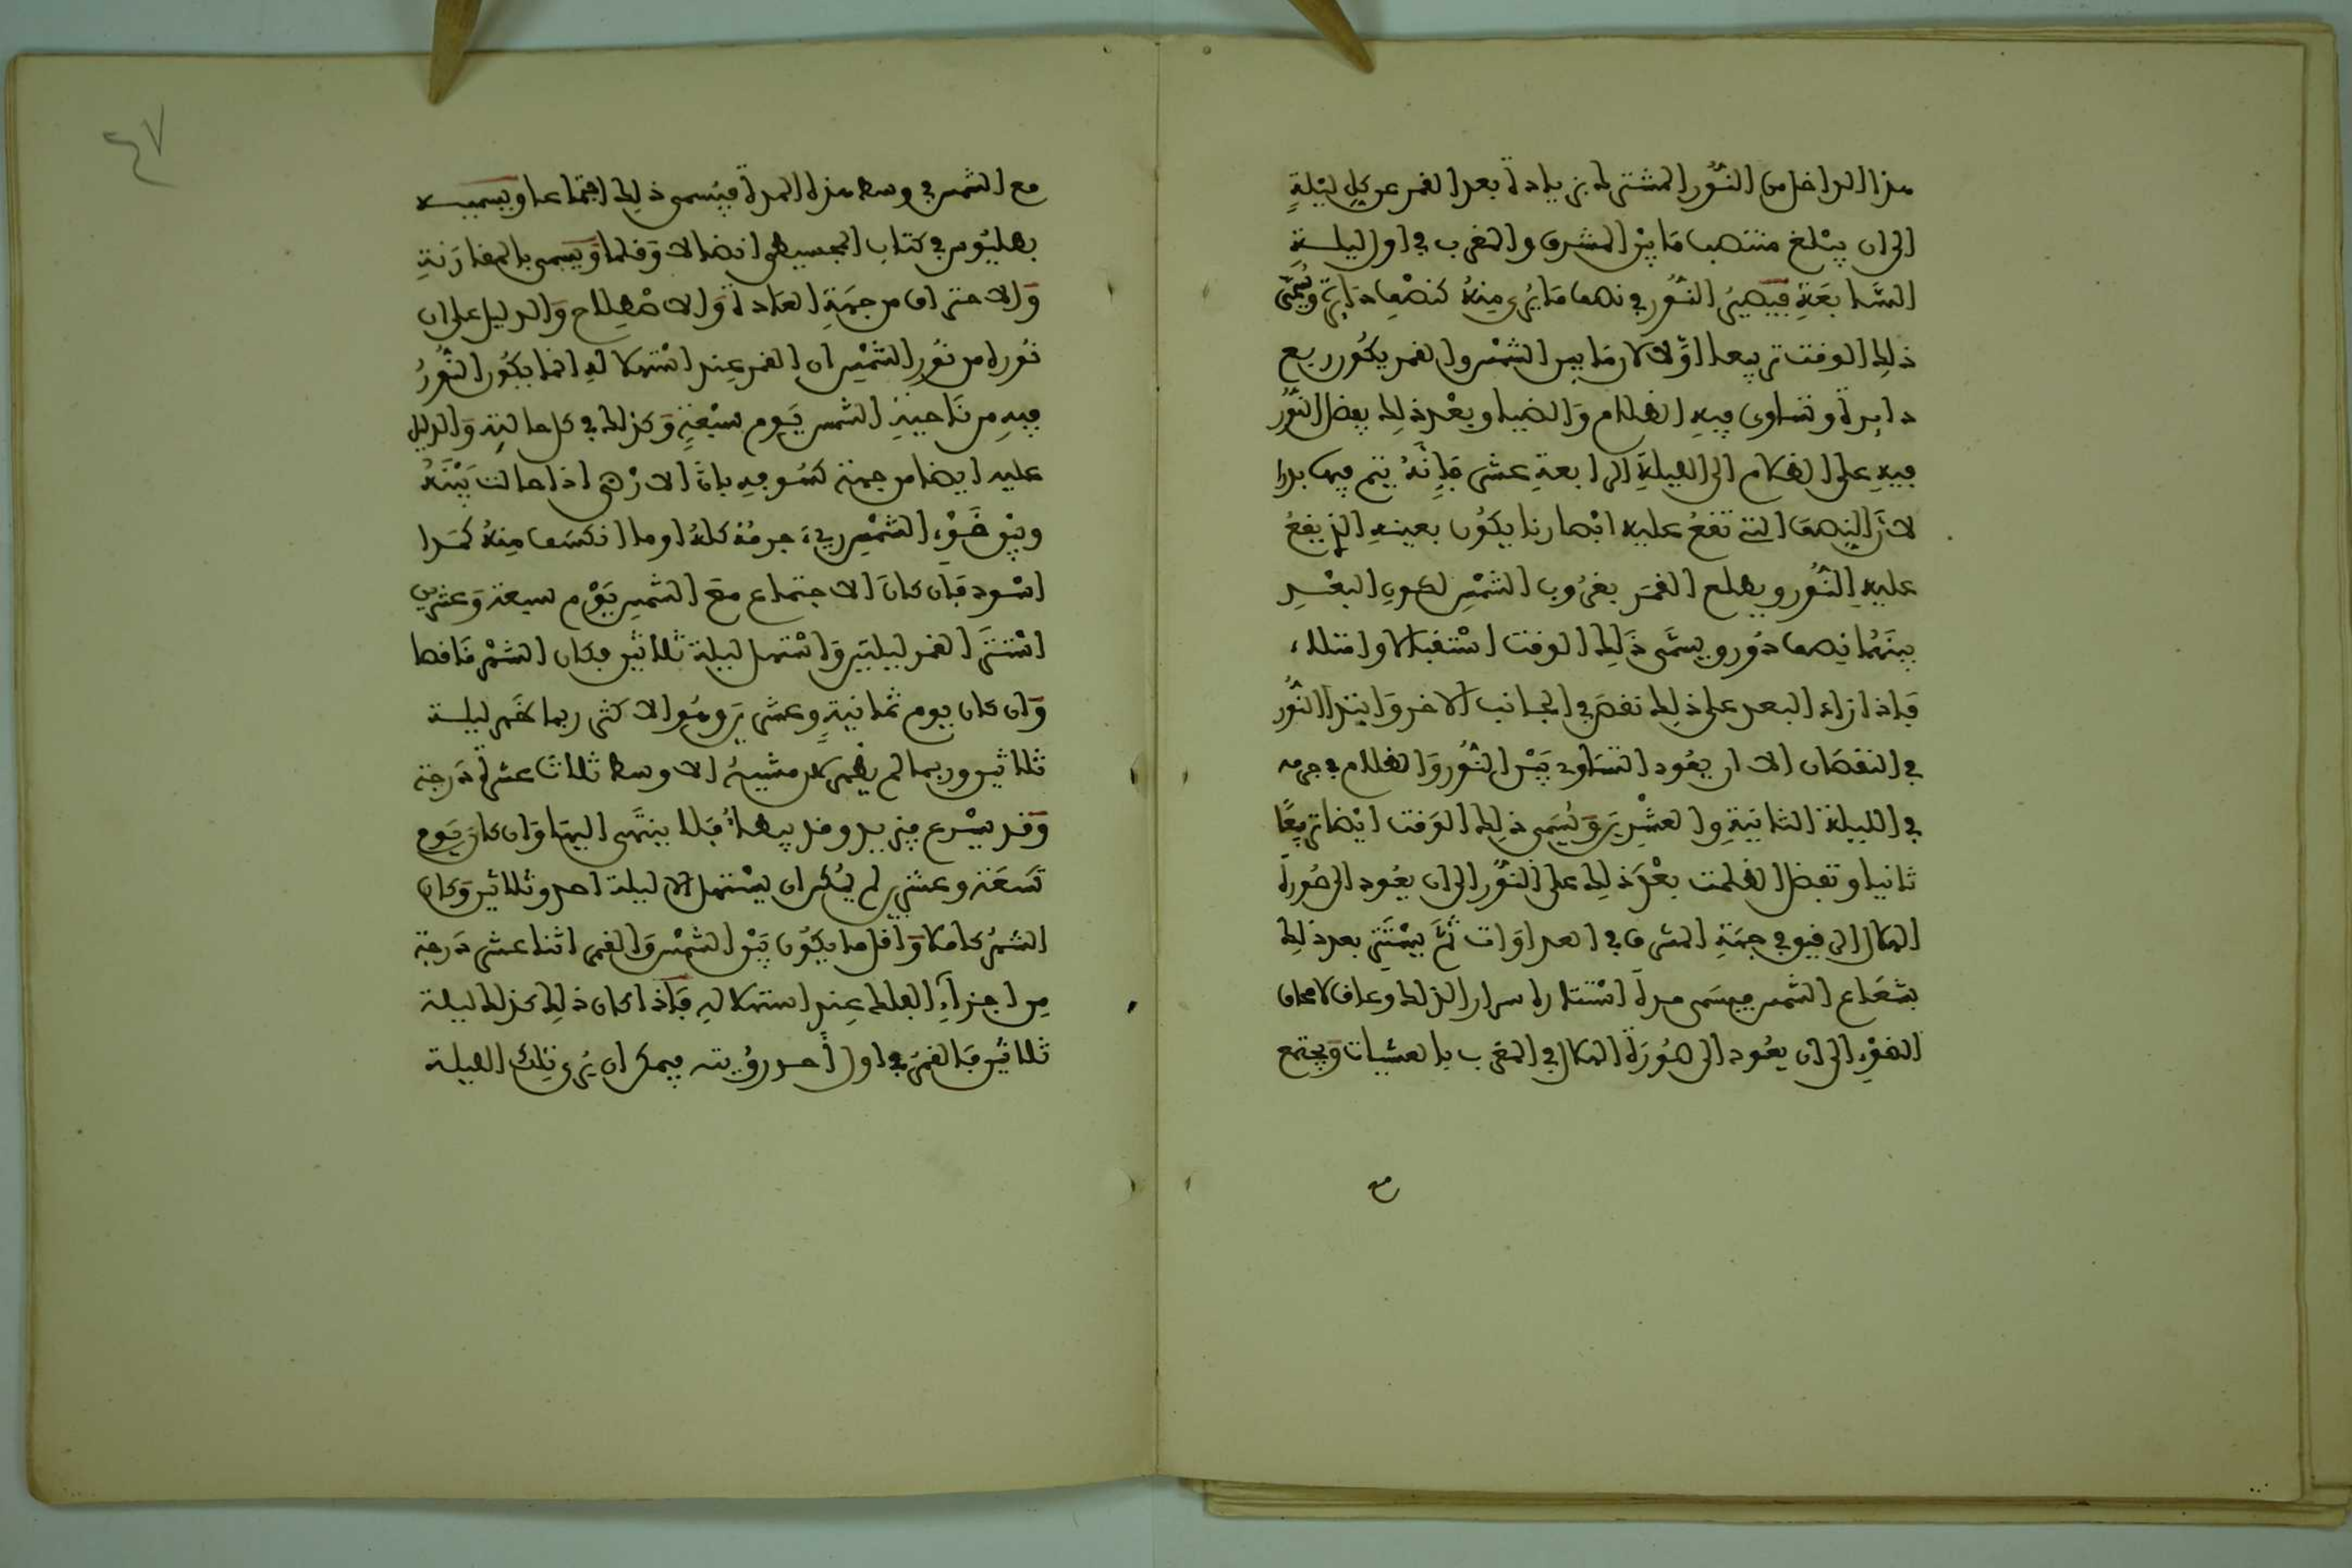 هذا الداخل من النُّور المشترك بزيادة بعد القمر عن كل ليْلةٍ
الى ان يبْلغ منتصف مَا بيْن المشرق والمغرب في اول ليلـــة
السَّابعَةِ فيَصيرُ النُّور في نصف مَا يُرى مِنهُ كنصْف دَايرة ويُسمَّى
ذلك الوقت تربيعا اوَّلا لان مَا بين الشمْس والقمر يكُون ربع
دايرة وتساوى فيه الظلام وَالضيا وبعْد ذلك يفضل النُّور
فيهِ على الظلام الى الليلةِ الرابعةِ عشر فَإنَّهُ يتم فيها بدرا
لانَّ النِصف التي تقعُ عليه ابْصارنا يكُون بعينه الذي يقعُ
عليهِ النُّور ويطلع القمَر بغرُوب الشمْس لكون البعْـــد
بينَهُما نِصف دوْر ويسمَّى ذَلِكَ الوقت اسْتقبالا وامتلاء
فَاذا زاد البعد على ذلِك نقصَ في الجانب الاخر وَابتدا النُّور
في النقصَان الى ان يعُود التسَاوي بَيْن النُّور وَالظلام في جرمه
في الليلة الثانيَةِ والعشْرين وَيُسَمى ذلِك الوَقت ايْضا تربيعًا
ثانيا وتفضل الظلمت بعْدَ ذلِك على النُّور الى ان يعُود الى صُورةَ
الهكال الدقيق في جهَةِ المشرق في الغداوَات ثمَّ يسْتَتِر بعد ذلِك
بشعَاع الشمس فيسَمى مدةَ اسْتتاره سرار الذلك وعاق لامحاق
الضوْءِ الى ان يعُود الى صُورَة الهكال في المغرب بالعشيات وَيجتمع
مع
٤٧
مع الشمس في وسط هذه المدة فيُسمى ذلِك اجتماعا ويسميــه
بطليُوس في كتاب المجسيطى اتصالا وَقلما وَيسمى بالمقارَنةِ
وَالاحتراق من جهَةِ العَادة وَالاصْطلاح وَالدليل على ان
نُوره من نُور الشمْس ان القمر عِند اسْتهكالهِ انما يكُون النُّورُ
فيهِ من نَاحيَةِ الشمس يَوم سَبْعةٍ وَكذلك في كل حالتِه وَالدليل
عليه ايضا من جهَة كسُوفِه بانَّ الارْض اذا حالت بَيْنَهُ
وبيْن ضَوْءِ الشمْس ريءَ جرمُهُ كلهُ اوما انكسَف مِنهُ كمَدا
اسْود فَان كانَ الاجتماع مَع الشمس يَوْم سبعة وَعشرين
اسْتتَر القمر ليلتين وَاسْتهل ليلة ثلاثين فكان الشهْر نَاقصا
وَان كان يوم ثمانيةٍ وعشرين وهُو الاكثر ربما ظهر ليلــة
ثلاثين وربما لم يظهر لان مشيهُ الاوسط ثلاث عشرة دَرجة
وَقد يسْرع فيزيد وقد يبطأ فَلا ينتَهى اليهَا وَان كان يَوم
تسعَة وعشرين لم يُمْكن ان يسْتهل الا ليلة احد وثلاثين وَكان
الشهرُ كامكا وَاقل ما يكُون بَيْن الشمْس وَالقمر اثنا عشر دَرجة
مِن اجزآءِ الفلك عِند استهكاله فَاذا كان ذلِك كذلك ليلة
ثلاثين فَالقمرُ في اول أحد رؤيته فيمكن ان يُرى تلِك الليلة